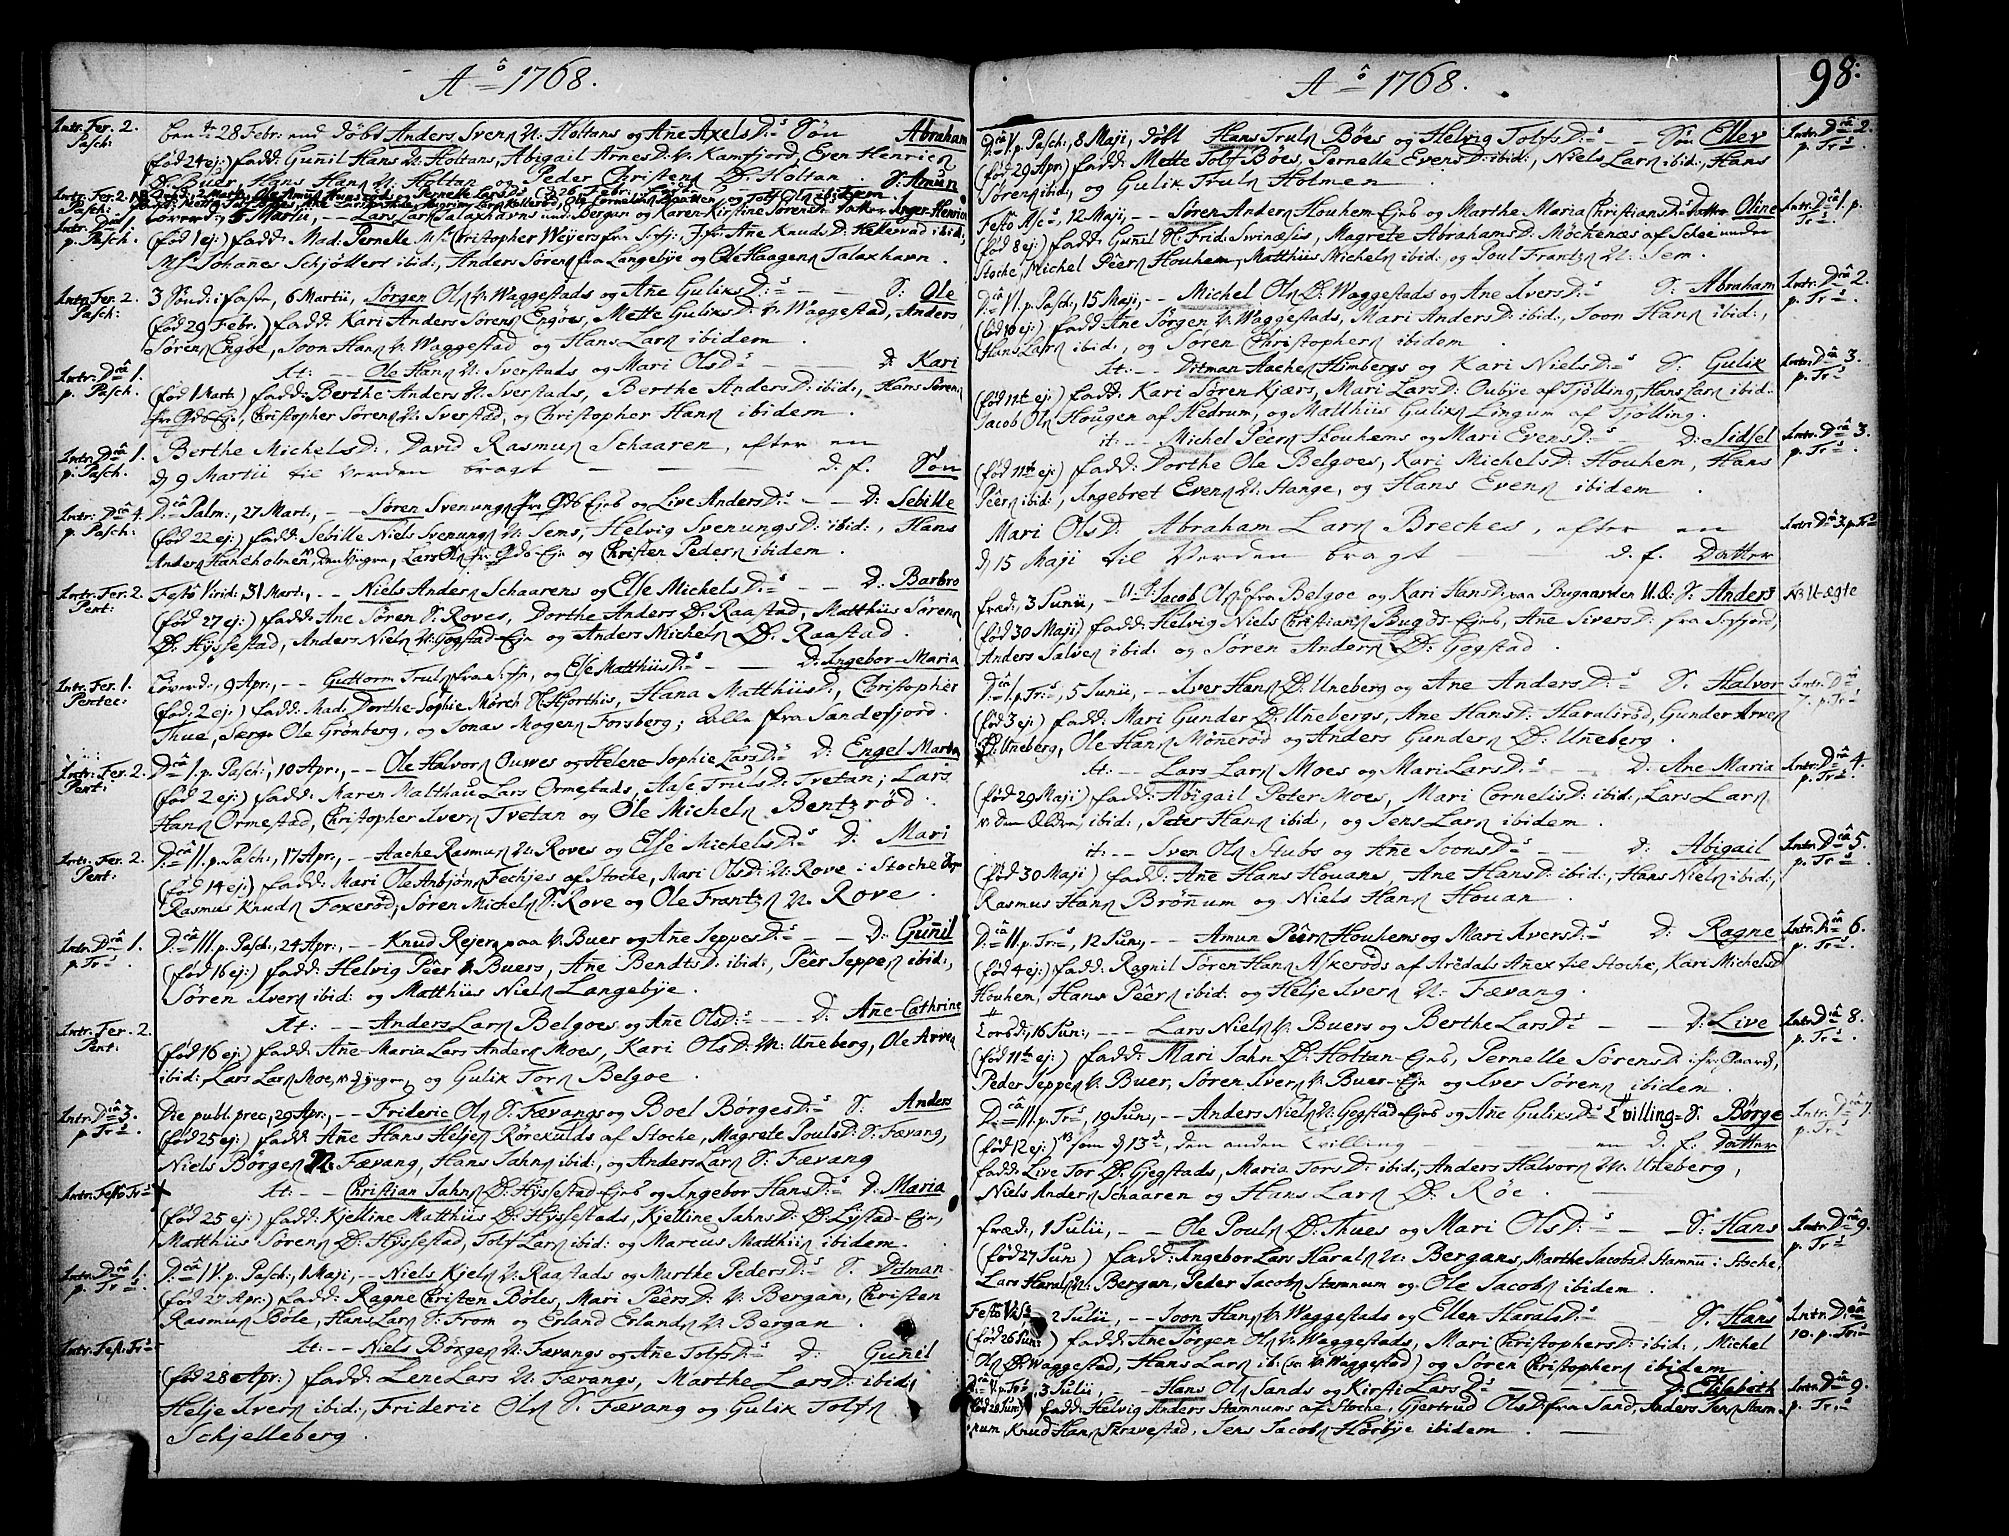 Aô 1768.
Intr. Fer. 2. Pasch:
28 Febr: Anders Svenſ N: Holtans og Ane Axels D:s Søn Abraham
(fød 24 ej:) fadd: Gunil Hans N: Holtans, Abigail Arnes D: V: Kamfjord, Even Henricſ
D: Buds, Hans Hanſ N: Holtan og Peder Christenſ D: Holtan.
S: Amun
Intr. Fer. 2.
Pasch:
Intr: Dca 1.
p. Pasch.
Løverd: 5 Martii, -- Lars Larſ Talaxhavns und: Bergan og Karen Kirstine Sørens D: Datter Inger-Henrica
(fød 1 ej:) fadd: Mad: Pernelle Mr Christopher Weyers fra S:fj:, Jfr Ane Knuds D: Hellesvad ibid:,
Mr Johanes Schjøtters ibid:, Anders Sørenſ fra Langebye og Ole Haagenſ Talaxhavn.
Intr. Fer. 2
Pasch:
3 Sønd: i Faste, 6 Martii, Jørgen Olſ V: Waggestads og Ane Guliks D:s -- S: Ole
(fød 29 Febr:) fadd: Kari Anders Sørens Engøes, Mette Guliks D: V: Waggestad, Anders
Sørenſ Engøe, Joon Hanſ V: Waggestad og Hans Larſ ibidem.
Intr: Dca 1.
p. Pasch.
It: -- Ole Hanſ N: Sverstads og Mari Ols D:s -- D: Kari
(fød 1 Mart:) fadd: Berthe Anders N: Sverstads, Berthe Anders D: ibid:, Hans Sørenſ
Christopher Sørenſ N: Sverstad, og Christopher Hanſ ibidem.
Intr. Dca 1.
p. Pasch.
Berthe Michels D:, David Rasmusſ Schaaren, efter en
d 9 Martii til Verden bragt -- d. f. Søn
Intr. Dca 4.
p. Pasch:
Dca Palm:, 27 Mart:, -- Søren Svenungſ og Live Anders D:s -- D: Sebille
(fød 22 ej:) fadd: Sebille Niels Svenungſ N: Sems, Helvig Svenungs D: ibid:, Hans
Anderſ Haneholmen og Christen Pederſ ibidem.
Intr. Fer. 2.
Pent:
Festô Virid: 31 Mart:, -- Niels Anderſ Schaarens og Else Michels D:s -- D: Barbro
(fød 27 ej:) fadd: Ane Søren S: Roves, Dorthe Anders D: Raastad, Matthiis Sørenſ
D: Hÿssestad, Anders Nielſ N: Gogstad-Ejn og Anders Michelſ D: Raastad.
Intr. Fer. 1.
Pentec:
Løverd:, 9 Apr:, -- Guttorm Trulſ fra S:fj:, og Else Matthiis D:s -- D: Ingebor-Maria
(fød 2 ej:) fadd: Mad: Dorthe-Sophie Mørch H: Hjorthis, Hana Matthiis D:, Christopher
Thue, Serg: Ole Grønberg, og Jonas Mogenſ Forsberg; alle fra Sandefjord.
Intr. Fer. 2.
Pent:
Dca 1. p. Pasch:, 10 Apr:, -- Ole Halvorſ Ouwes og Helene-Sophie Lars D:s D: Engel Martha
(fød 2 ej:) fadd: Maren Matthæa Lars Ormestads, Aase Truls D: Tvetan; Lars
Hanſ Ormestad, Christopher Iverſ Tvetan og Ole Michelſ Bentzrød.
Intr. Fer. 2.
Pent:
Dca 11. p. Pasch:, 17 Apr:, -- Aache Rasmusſ N: Roves og Else Michels D:s D: Mari
(fød 14 ej:) fadd: Mari Ole Anbjønſ Fechjes af Stoche, Mari Ols D: N: Rove i Stoche Sogn
Rasmus Knudſ Foxerød, Søren Michelſ S: Rove og Ole Frantzſ N: Rove.
Intr. Dca 1.
p. Tr:s
Dca 111. p. Pasch:, 24 Apr:, -- Knud Rejerſ paa V: Buer og Ane Jeppes D:s -- D: Gunil
(fød 16 ej:) fadd: Helvig Pêer V: Buers, Ane Bendts D: ibid:, Pêer Jeppeſ ibid:,
Søren Iverſ ibid: og Matthiis Nielſ Langebÿe.
Intr. Fer. 2.
Pent:
It: -- Anders Larſ Belgoes og Ane Ols D:s -- D: Ane-Cathrine
(fød 16 ej:) fadd: Ane-Maria Lars Anderſ Moes, Kari Ols D: N: Uneberg, Ole Arveſ
ibid:, Lars Larſ Moe, og Gulik Torſ Belgoe.
Intr. Dca 3.
p. Tr:s
Die publ. prec:, 29 Apr:, -- Frideric Olſ S: Fævangs og Boel Børges D:s S: Anders
(fød 25 ej:) fadd: Ane Hans Heljeſ Rørekulds af Stoche, Magrete Pouls D: S: Fævang,
Niels Børgeſ N: Fævang, Hans Jahnſ ibid:, og Anders Larſ S: Fævang
Intr. Festô Tr:s
It: -- Christian Jahnſ D: Hÿssestad-Ejes og Ingebor Hans D:s D: Maria
(fød 25 ej:) fadd: Kjelline Matthiis D: Hÿssestads, Kjelline Jahns D: D: Lÿstad-Ejn,
Matthiis Sørenſ D: Hÿssestad, Tolf Larſ ibid: og Marcus Matthiiſ ibidem.
Intr. Dca 1.
p. Tr:s
Dca 1V. p. Pasch:, 1 Maji, -- Niels Kjelſ V: Raastads og Marthe Peders D:s S: Ditman
(fød 27 Apr:) fadd: Ragne Christen Bôles, Mari Pêers D: V: Bergan, Christen
Rasmusſ Bôle, Hans Larſ S: From og Erland Erlandſ V: Bergan.
Intr. Fest. Tr:s
It: -- Niels Børgeſ N: Fævangs og Ane Tolfs D:s D: Gunil
(fød 28 Apr:) fadd: Lene Lars N: Fævangs, Marthe Lars D: ibid:,
Helje Iverſ ibid:, Frideric Olſ S: Fævang og Gulik Tolfſ
Schjelleberg.
Aô 1768.
98:
Dca V. p. Pasch:, 8 Maji, døbt Hans Trulſ Bôes og Helvig Tolfs D:s -- Søn Ellev
Intr. Dca 2.
p. Tr:s
(fød 29 Apr:) fadd: Mette Tolf Bôes, Pernelle Evens D: ibid:, Niels Larſ ibid:, Hans
Sørenſ ibid:, og Gulik Trulſ Holmen.
Festô Asc:s, 12 Maji, -- Søren Anderſ Houhem-Ejes og Marthe Maria Christians D:s Datter Oline
Intr. Dca 1. p.
Tr:s
(fød 8 ej:) fadd: Gunil H: Frid: Svinæsius, Magrete Abrahams D: Møchenæs af Schee under
Stoche, Michel Pêerſ Houhem, Matthiis Michelſ ibid: og Poul Frantzſ N: Sem.
Dca V1. p. Pasch:, 15 Maji, -- Michel Olſ D: Waggestads og Ane Ivers D:s S: Abraham
Intr. Dca 2.
p. Tr:s
(fød 10 ej:) fadd: Ane Jørgen V: Waggestads, Mari Anders D: ibid:, Joon Hanſ ibid:,
Hans Larſ ibid:, og Søren Christopherſ ibidem.
It: -- Ditman Aacheſ Himbergs og Kari Niels D:s S: Gulik
Intr. Dca 3.
p. Tr:s
(fød 11te ej:) fadd: Kari Søren Kjærs, Mari Lars D: Oubÿe af Tjølling, Hans Larſ ibid:
Jacob Olſ Hougen af Hedrum, og Matthiis Gulikſ Lingum af Tjølling.
it: -- Michel Pêerſ Houhems og Mari Evens D:s D: Sidsel
Intr. Dca 3.
p. Tr:s
(fød 11te ej:) fadd: Dorthe Ole Belgoes, Kari Michels D: Houhem, Hans
Pêerſ ibid:, Ingebret Evenſ N: Stange, og Hans Evenſ ibidem.
Mari Ols D: Abraham Larſ Breches, efter en
Intr. Dca 3. p. Tr:s
d 15 Maji til Verden bragt -- d. f. Datter
Fred:, 3 Junii, -- U. P: Jacob Olſ fra Belgoe og Kari Hans D: paa Bugaarden U. Æ: S: Anders
NB Uægte
(fød 30 Maji) fadd: Helvig Niels Christianſ Bugds-Ejes, Ane Sivers D: fra S:fjord,
Anders Salveſ ibid: og Søren Anderſ D: Gogstad.
Dca 1. p. Tr:s, 5 Junii, -- Iver Hanſ D: Uneberg og Ane Anders D:s S: Halvor
Intr. Dca
7. p. Tr:s
(fød 3 ej:) fadd: Mari Gunder D: Unebergs, Ane Hans D: Haralsrød, Gunder Arveſ
D: Uneberg, Ole Hanſ Mønerød og Anders Gunderſ D: Uneberg.
It: -- Lars Larſ Moes og Mari Lars D:s -- D: Ane Maria
Intr. Dca 4.
p. Tr:s
(fød 29 Maji) fadd: Abigail Peter Moes, Mari Cornelis D: ibid:, Lars Larſ
ibid:, Peter Hanſ ibid:, og Jens Larſ ibidem.
it: -- Sven Olſ Stubs og Ane Joons D:s -- D: Abigail
Intr. Dca 5.
p. Tr:s
(fød 30 Maji) fadd: Ane Hans Houans, Ane Hans D: ibid:, Hans Nielſ ibid:,
Rasmus Hanſ Brønum og Niels Hanſ Houan.
Dca 11. p. Tr:s, 12 Jun:, -- Amun Pêerſ Houhems og Mari Ivers D:s D: Ragne
Intr. D. 6.
p. Tr:s
(fød 4 ej:) fadd: Ragnil Søren Hanſ Askerøds af Arødals Anex til Stoche, Kari Michels D
Houhem, Hans Pêerſ ibid: og Helje Iverſ N: Fævang.
Torsd:, 16 Jun:, -- Lars Nielſ V: Buers og Berthe Lars D:s -- D: Live
Intr. Dca 8.
p. Tr:s
(fød 11te ej:) fadd: Mari Jahn D: Holtan-Ejes, Pernelle Sørens D:
Peder Jeppeſ V: Buer, Søren Iverſ V: Buer-Ejn og Iver Sørenſ ibidem.
Dca 111. p. Tr:s, 19 Jun:, -- Anders Nielſ V: Gogstad-Ejes og Ane Guliks D:s Tvilling-S: Børge
Intr. Dca 7.
p. Tr:s
(fød 12 ej:) NB som d 13de, den anden Tvilling -- en d. f. Datter
fadd: Live Tor D: Gjegstads, Maria Tors D: ibid:, Anders Halvorſ N: Uneberg,
Niels Anderſ Schaaren og Hans Larſ D: Røe.
Fred:, 1 Julii, -- Ole Poulſ D: Thues og Mari Ols D:s -- S: Hans
Intr. Dca 9.
p. Tr:s
(fød 27 Jun:) fadd: Ingebor Lars Haralſ N: Bergans, Marthe Jacobs D: Stamnu i Stoche,
Lars Haralſ N: Bergan, Peder Jacobſ Stamnum og Ole Jacobſ ibidem.
Festô V:s 2 Julii, -- Joon Hanſ V: Waggestads og Ellen Harals D:s S: Hans
Intr. Dca
10. p. Tr:s
(fød 26 Jun:) fadd: Ane Jørgen Olſ V: Waggestads, Mari Christophers D: ibid:, Michel
Olſ D: Waggestad, Hans Larſ ib: (sc: V: Waggestad) og Søren Christopherſ ibidem
Dca V. p. Tr:s 3 Julii, -- Hans Olſ Sands og Kirsti Lars D:s -- D: Elisabeth
Intr. Dca 9.
p. Tr:s
(fød 28 Jun:) fadd: Helvig Anders Stamnums af Stoche, Gjertrud Ols D: fra Sand, Anders Jenſ Stam-
num Knud Hanſ Skravestad, Jens Jacobſ Hørbÿe ibidem.